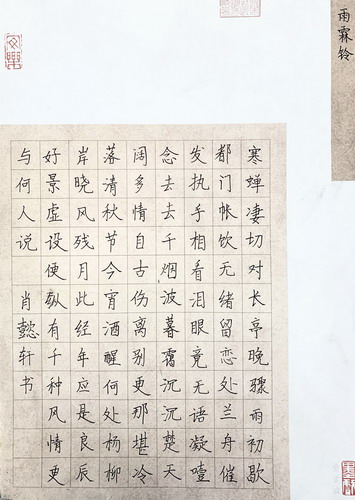 雨霖铃
寒蝉凄切对长亭晚骤雨初歇
都门帐饮无绪留恋处兰舟催
发执手相看泪眼竟无语凝噎
念去去千烟波暮霭沉沉楚天
阔多情自古伤离别更那堪冷
落清秋节今宵酒醒何处杨柳
岸晓风残月此经年应是良辰
好景虚设便纵有千种风情更
与何人说 肖懿轩书